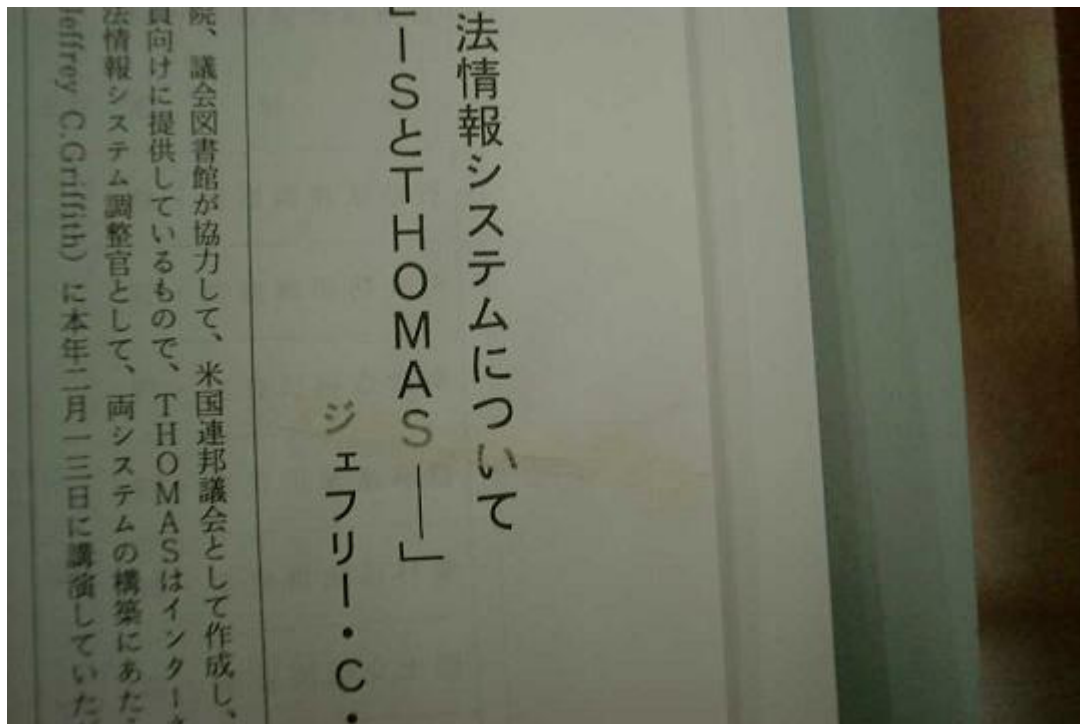 法情報システムについて
ISとTHOMAS――」
ジェフリー・C・
院、議会図書館が協力して、米国連邦議会として作成し、
員向けに提供しているもので、THOMASはインター
法情報システム調整官として、両システムの構築にあた
Jeffrey C.Griffith）に本年二月一三日に講演していただ